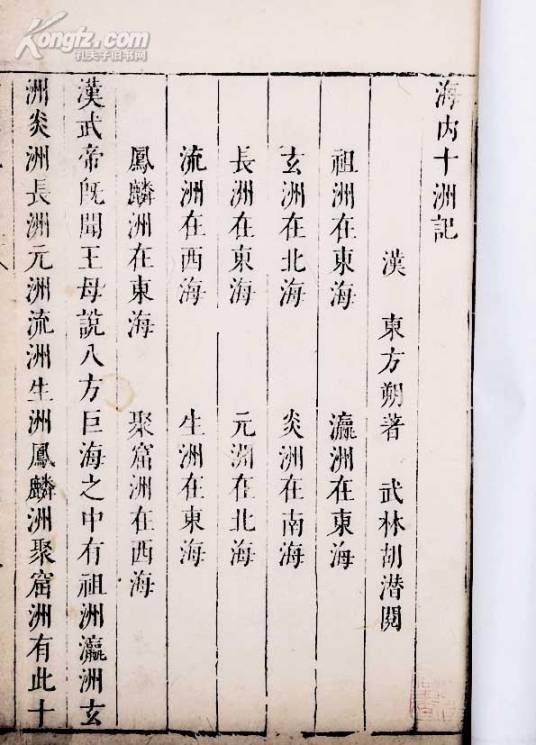 Kongfz.com
孔夫子旧书网
海内十洲記
漢 東方朔著 武林胡潜閱
祖洲在東海 瀛洲在東海
玄洲在北海 炎洲在南海
長洲在東海 元洲在北海
流洲在西海 生洲在東海
鳳麟洲在東海 聚窟洲在西海
漢武帝旣聞王母說八方巨海之中有祖洲瀛洲玄
洲炎洲長洲元洲流洲生洲鳳麟洲聚窟洲有此十